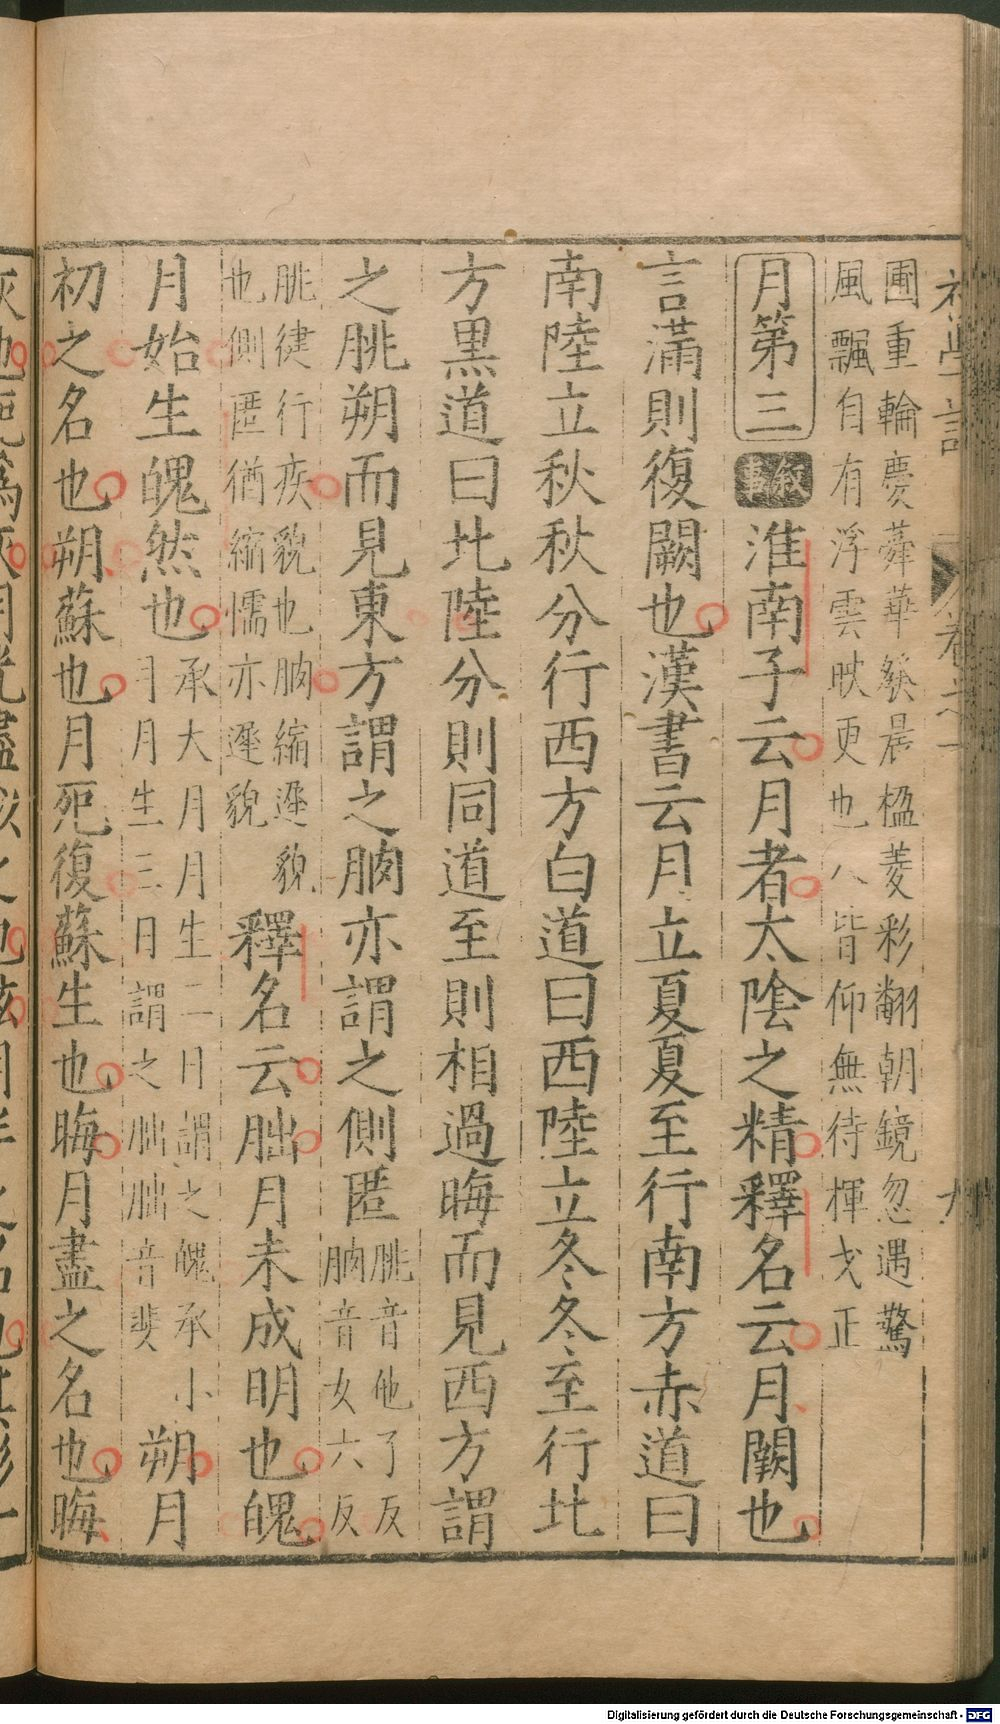 初學記
卷之一
九
圃重輪慶蕣華發晨楹菱彩翻朝鏡忽遇驚
風飄自有浮雲映更也人皆仰無待揮戈正
月第三
敘事
淮南子云月者太陰之精釋名云月闕也
言滿則復闕也漢書云月立夏夏至行南方赤道曰
南陸立秋秋分行西方白道曰西陸立冬冬至行北
方黑道曰北陸分則同道至則相過晦而見西方謂
之朓朔而見東方謂之朒亦謂之側匿
朓音他了反
朒音女六反
朓健行疾貌也朒縮遲貌
也側匿猶縮懦亦遲貌
釋名云朏月未成明也魄
月始生魄然也
承大月月生二日謂之魄承小
月月生三日謂之朏朏音斐
朔月
初之名也朔蘇也月死復蘇生也晦月盡之名也晦
Digitalisierung gefördert durch die Deutsche Forschungsgemeinschaft - DFG